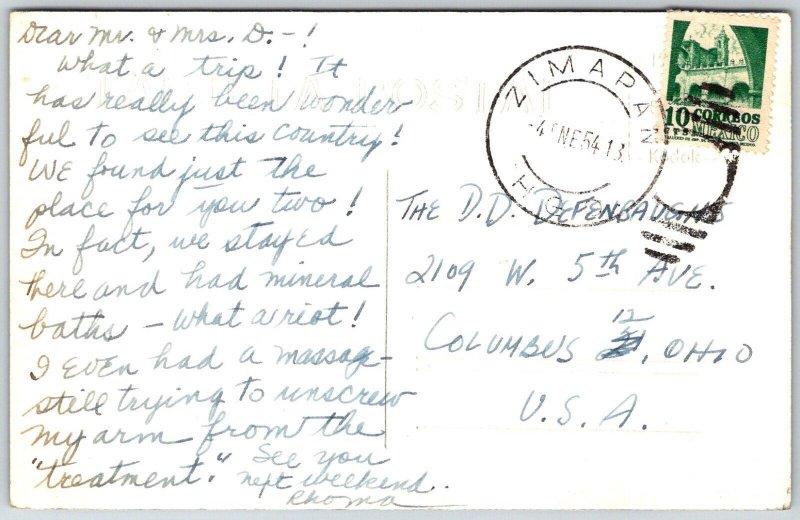 Dear Mr. & Mrs. D. - !
What a trip! It
has really been wonder-
ful to see this country!
We found just the
place for you two!
In fact, we stayed
there and had mineral
baths - what a riot!
I even had a massage -
still trying to unscrew
my arm from the
"treatment." See you
next weekend.
Rhoma
ZIMAPAN
-4 ENE 54 13
HGO.
10 CORREOS
CTS MEXICO
Kodak
TARJETA POSTAL
THE D.D. DEFENBAUGHS
2109 W. 5th AVE.
12
COLUMBUS , OHIO
U.S.A.